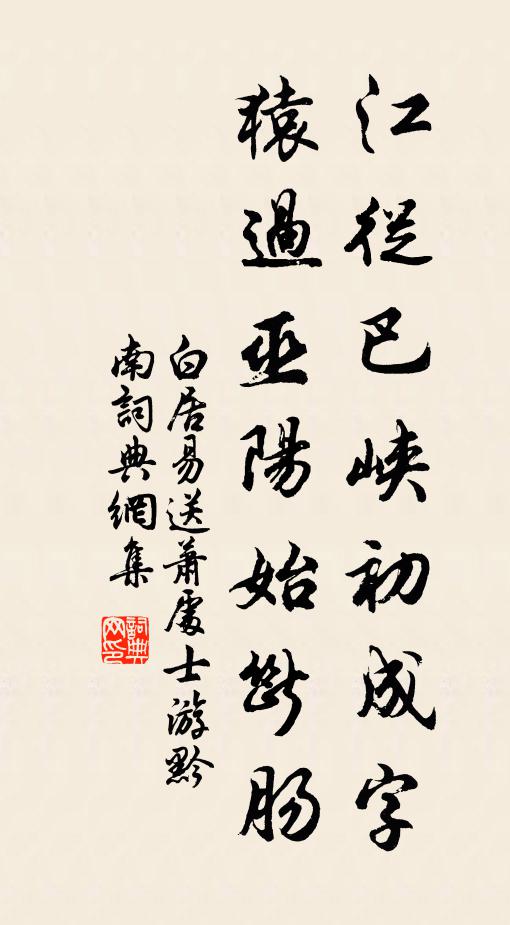 江從巴峽初成字
猿過巫陽始斷肠
白居易送蕭處士游黔
南詞典網集
詞典
网印